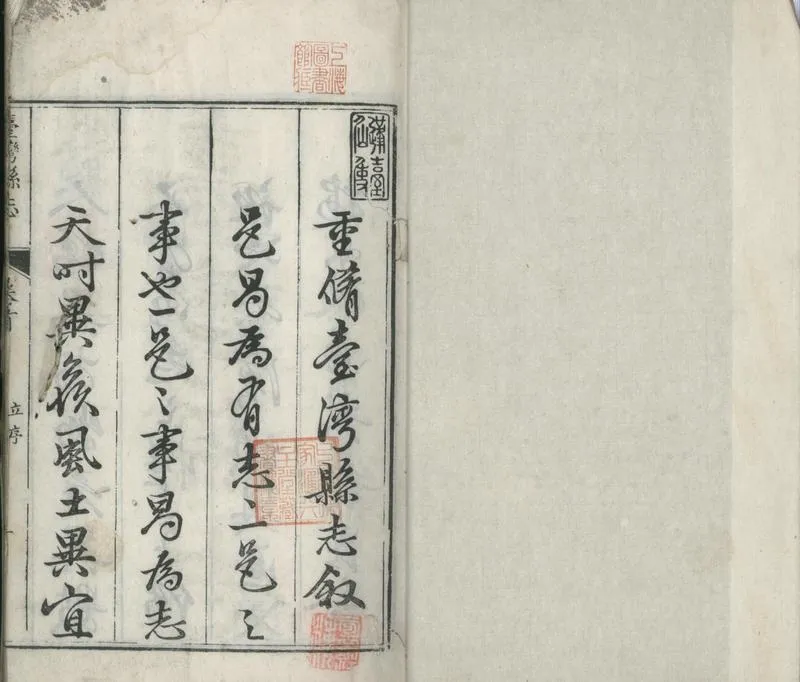 重脩臺灣縣志敘
邑曷為有志志一邑之
事也一邑之事曷為志
天時異候風土異宜
臺灣縣志
卷首
立序